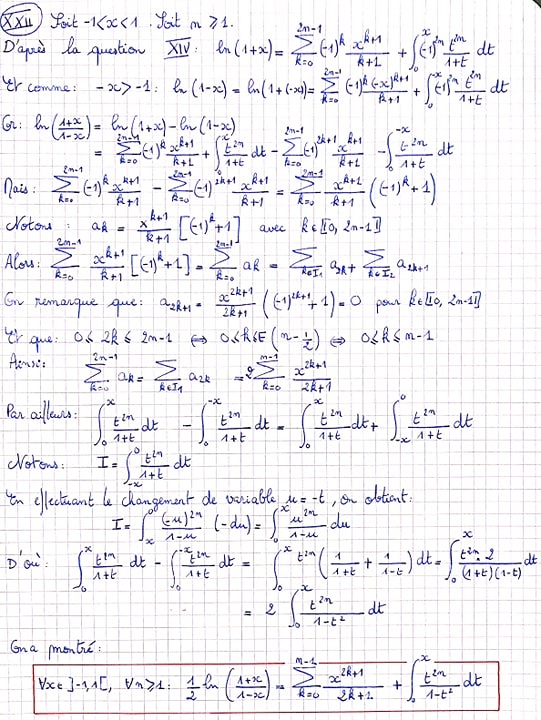 XXII Soit -1<x<1. Soit n ⩾ 1.
D'après la question XIV : ln(1+x) = ∑_{k=0}^{2n-1} (-1)^k x^{k+1}/(k+1) + ∫_0^x (-1)^{2n} t^{2n}/(1+t) dt
Et comme : -x > -1 : ln(1-x) = ln(1+(-x)) = ∑_{k=0}^{2n-1} (-1)^k (-x)^{k+1}/(k+1) + ∫_0^{-x} (-1)^{2n} t^{2n}/(1+t) dt
Or : ln((1+x)/(1-x)) = ln(1+x) - ln(1-x)
= ∑_{k=0}^{2n-1} (-1)^k x^{k+1}/(k+1) + ∫_0^x t^{2n}/(1+t) dt - ∑_{k=0}^{2n-1} (-1)^{2k+1} x^{k+1}/(k+1) - ∫_0^{-x} t^{2n}/(1+t) dt
Mais : ∑_{k=0}^{2n-1} (-1)^k x^{k+1}/(k+1) - ∑_{k=0}^{2n-1} (-1)^{2k+1} x^{k+1}/(k+1) = ∑_{k=0}^{2n-1} x^{k+1}/(k+1) ((-1)^k + 1)
Notons : a_k = x^{k+1}/(k+1) [(-1)^k + 1] avec k ∈ ⟦0, 2n-1⟧
Alors : ∑_{k=0}^{2n-1} x^{k+1}/(k+1) [(-1)^k + 1] = ∑_{k=0}^{2n-1} a_k = ∑_{k∈I_1} a_{2k} + ∑_{k∈I_2} a_{2k+1}
On remarque que : a_{2k+1} = x^{2k+1}/(2k+1) ((-1)^{2k+1} + 1) = 0 pour k ∈ ⟦0, 2n-1⟧
Et que : 0 ⩽ 2k ⩽ 2n-1 ⇔ 0 ⩽ k ⩽ E(n - 1/2) ⇔ 0 ⩽ k ⩽ n-1
Ainsi : ∑_{k=0}^{2n-1} a_k = ∑_{k∈I_1} a_{2k} = 2 ∑_{k=0}^{n-1} x^{2k+1}/(2k+1)
Par ailleurs : ∫_0^x t^{2n}/(1+t) dt - ∫_0^{-x} t^{2n}/(1+t) dt = ∫_0^x t^{2n}/(1+t) dt + ∫_{-x}^0 t^{2n}/(1+t) dt
Notons : I = ∫_{-x}^0 t^{2n}/(1+t) dt
En effectuant le changement de variable u = -t, on obtient :
I = ∫_x^0 (-u)^{2n}/(1-u) (-du) = ∫_0^x u^{2n}/(1-u) du
D'où : ∫_0^x t^{2n}/(1+t) dt - ∫_0^{-x} t^{2n}/(1+t) dt = ∫_0^x t^{2n} (1/(1+t) + 1/(1-t)) dt = ∫_0^x t^{2n}·2/((1+t)(1-t)) dt
= 2 ∫_0^x t^{2n}/(1-t²) dt
On a montré :
∀x ∈ ]-1,1[, ∀n ⩾ 1 : 1/2 ln((1+x)/(1-x)) = ∑_{k=0}^{n-1} x^{2k+1}/(2k+1) + ∫_0^x t^{2n}/(1-t²) dt